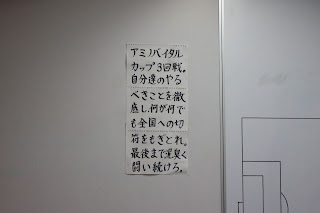 アミノバイタル
カップ3回戦。
自分達のやる
べきことを徹
底し、何が何で
も全国への切
符をもぎとれ。
最後まで泥臭く
闘い続けろ。